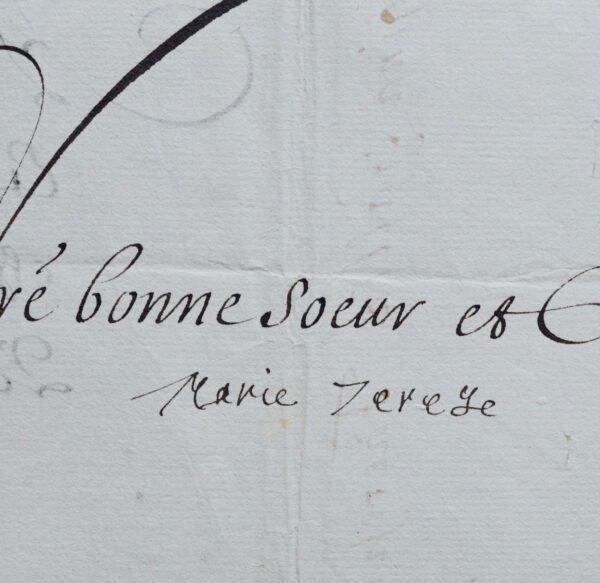 ré bonne Soeur et
Marie Tereze